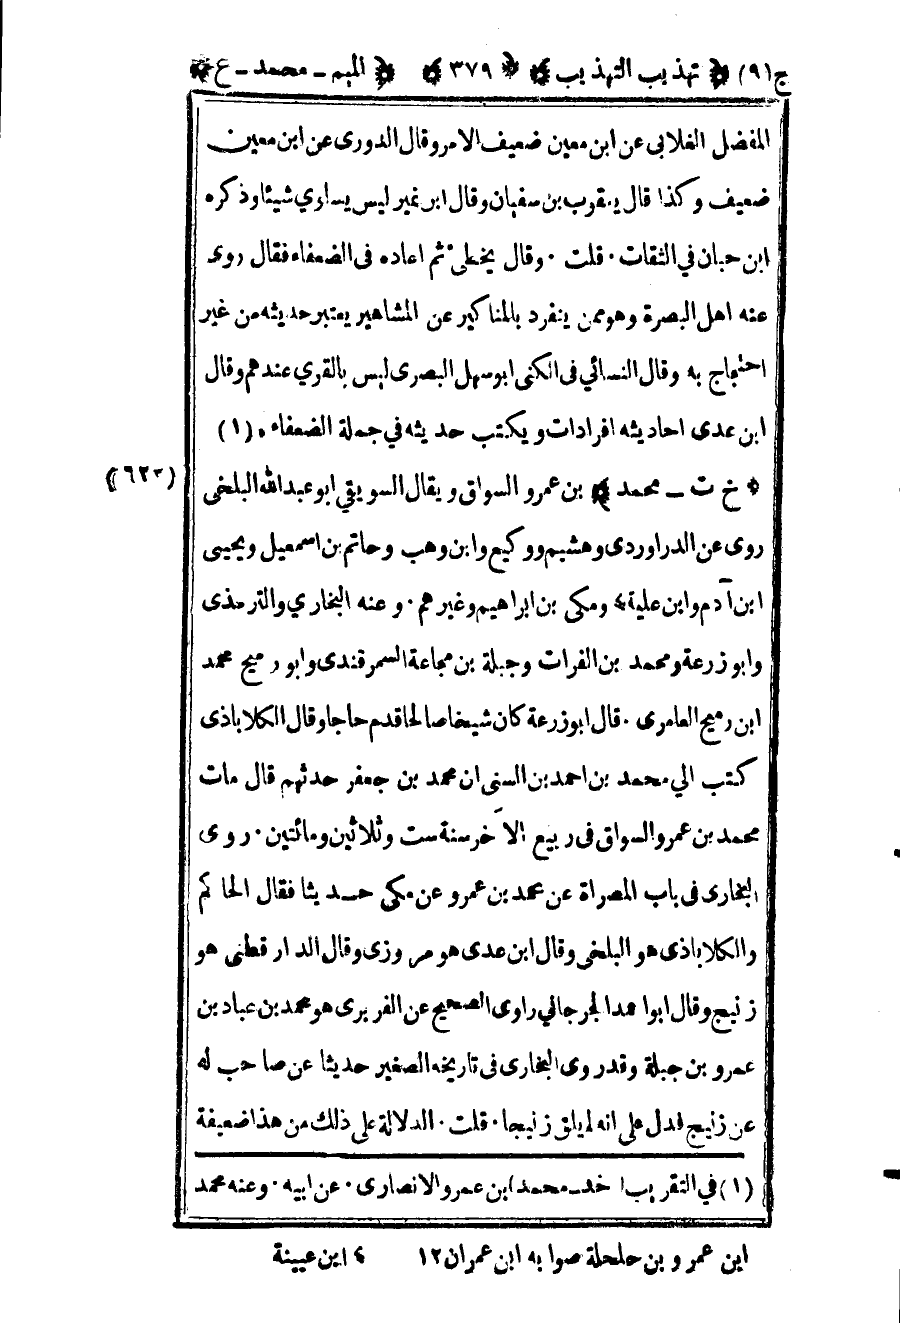 ج (٩) ﴿ تهذيب التهذيب ﴾ ﴿ ٣٧٩ ﴾ ﴿ الميم ـ محمد ـ ع ﴾
المفضل الغلابى عن ابن معين ضعيف الامر وقال الدورى عن ابن معين
ضعيف وكذا قال يعقوب بن سفيان وقال ابن نمير ليس يساوي شيئا وذكره
ابن حبان في الثقات ٠ قلت ٠ وقال يخطئ ثم اعاده فى الضعفاء فقال روى
عنه اهل البصرة وهو ممن ينفرد بالمناكير عن المشاهير يعتبر حديثه من غير
احتجاج به وقال النسائي فى الكنى ابو سهل البصرى ليس بالقوي عندهم وقال
ابن عدى احاديثه افرادات ويكتب حديثه في جملة الضعفاء ٠ (١)
﴿ خ ت ـ محمد ﴾ بن عمرو السواق ويقال السويقي ابو عبدالله البلخى
(٦٢٣)
روى عن الدراوردى وهشيم ووكيع وابن وهب وحاتم بن اسمعيل ويحيى
ابن آدم وابن علية ٤ ومكى بن ابراهيم وغيرهم ٠ وعنه البخاري والترمذى
وابو زرعة ومحمد بن الفرات وجبلة بن مجاعة السمرقندى وابو رميح محمد
ابن رميح العامرى ٠ قال ابو زرعة كان شيخا صالحا قدم حاجا وقال الكلاباذى
كتب الي محمد بن احمد بن السنى ان محمد بن جعفر حدثهم قال مات
محمد بن عمرو السواق فى ربيع الآخر سنة ست وثلاثين ومائتين ٠ روى
البخارى فى باب المصراة عن محمد بن عمرو عن مكى حديثا فقال الحاكم
والكلاباذى هو البلخى وقال ابن عدى هو مروزى وقال الدار قطنى هو
زنيج وقال ابو احمد الجرجاني راوى الصحيح عن الفربرى هو محمد بن عباد بن
عمرو بن جبلة وقد روى البخارى فى تاريخه الصغير حديثا عن صاحب له
عن زنيج فدل على انه لم يلق زنيجا ٠ قلت ٠ الدلالة على ذلك من هذا ضعيفة
(١) في التقريب ا خد ـ محمد ابن عمرو الانصارى ٠ عن ابيه ٠ وعنه محمد
ابن عمرو بن حلحلة صوابه ابن عمران ١٢ ٤ ابن عيينة